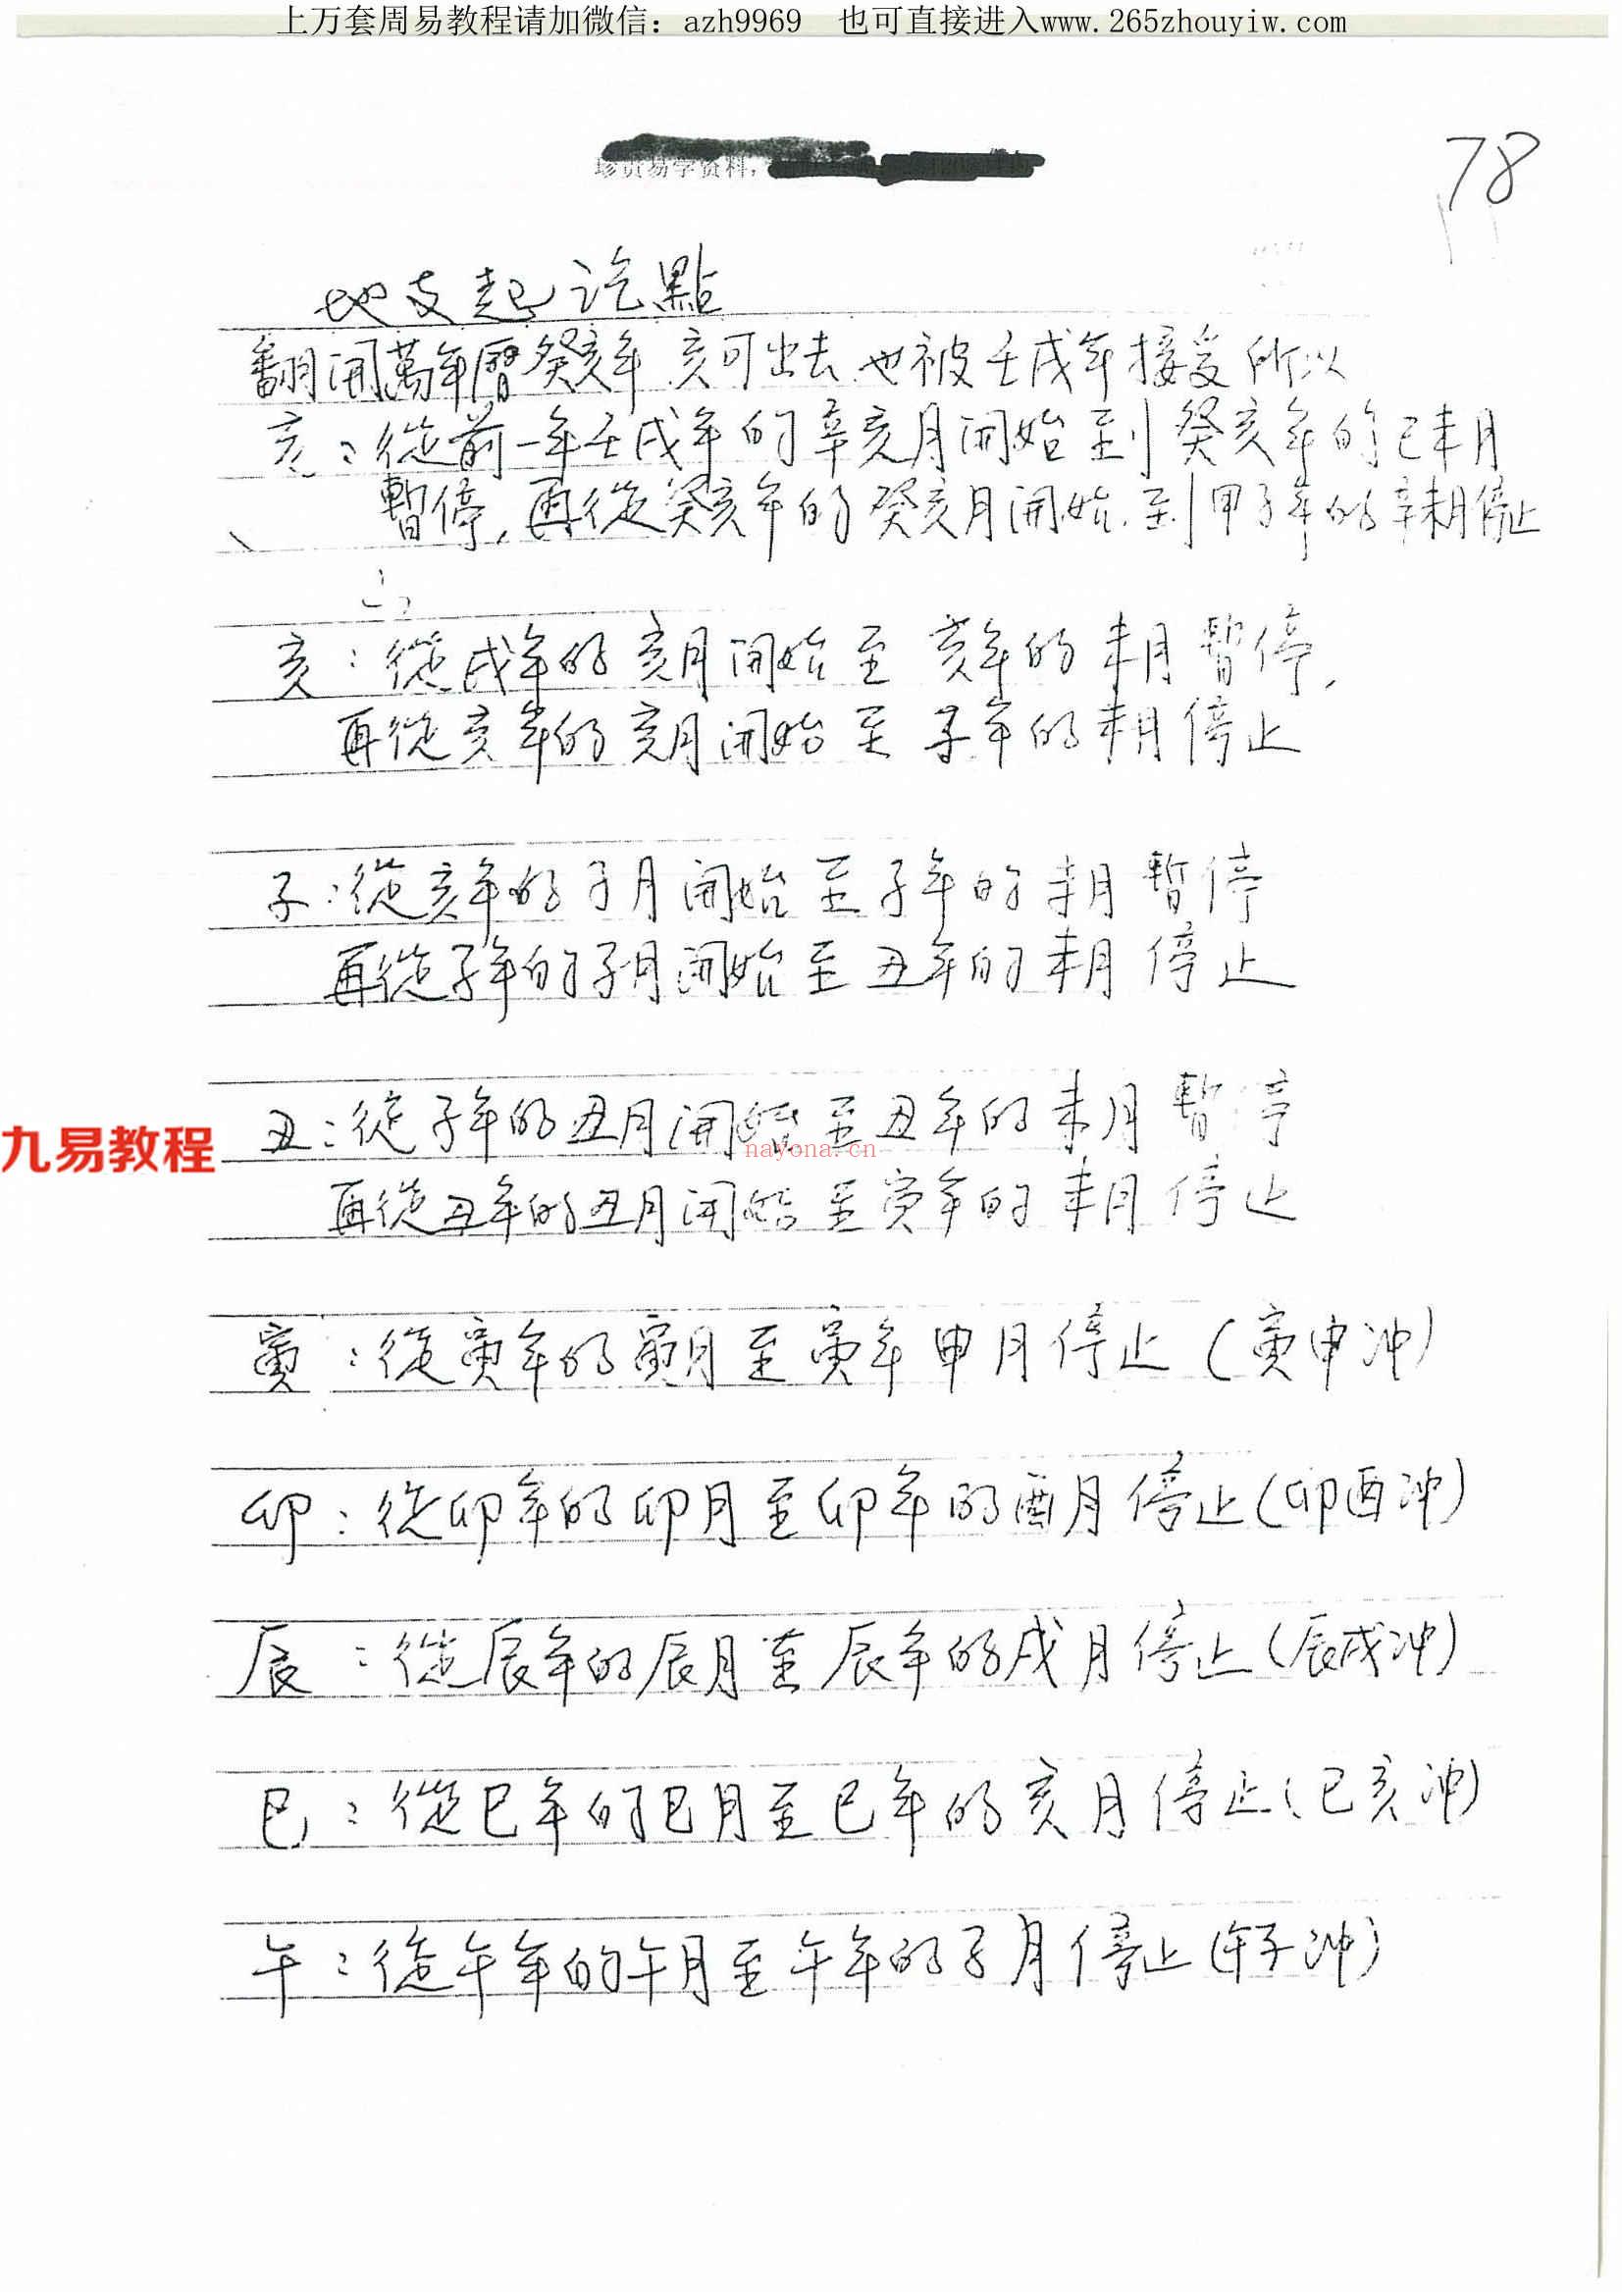 上万套周易教程请加微信：azh9969 也可直接进入www.265zhouyiw.com
珍贵易学资料，
78
地支起讫點
翻開萬年曆癸亥年亥可出去也被壬戌年接受所以
亥：從前一年壬戌年的辛亥月開始到癸亥年的己未月
暫停，再從癸亥年的癸亥月開始到甲子年的辛未月停止
亥：從戌年的亥月開始至亥年的未月暫停，
再從亥年的亥月開始至子年的未月停止
子：從亥年的子月開始至子年的未月暫停
再從子年的子月開始至丑年的未月停止
丑：從子年的丑月開始至丑年的未月暫停
九易教程
nayona.cn
再從丑年的丑月開始至寅年的未月停止
寅：從寅年的寅月至寅年申月停止（寅申冲）
卯：從卯年的卯月至卯年的酉月停止（卯酉冲）
辰：從辰年的辰月至辰年的戌月停止（辰戌冲）
巳：從巳年的巳月至巳年的亥月停止（巳亥冲）
午：從午年的午月至午年的子月停止（午子冲）